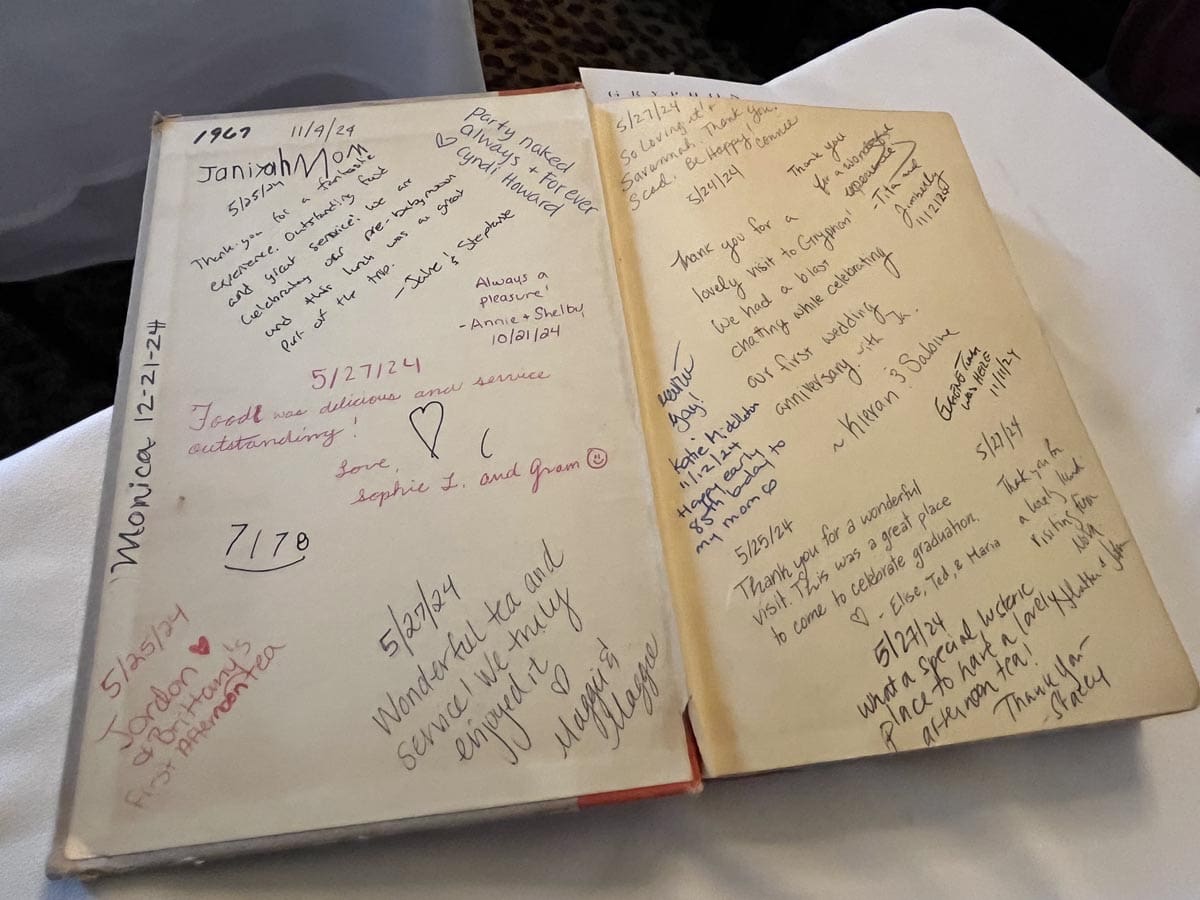 1967
11/9/24
Janiyah Mom
5/25/24
Thank you for a fantastic
experience. Outstanding food
and great service! We are
celebrating our pre-babymoon
and this lunch was a great
part of the trip.
- Jake & Stephanie
Party naked
always + Forever
♡ Cyndi Howard
Always a
pleasure!
- Annie + Shelby
10/21/24
5/27/24
Food was delicious and service
outstanding!
Love,
Sophie L. and Gram ☺
Monica 12-21-24
7178
5/25/24
Jordon ♥
& Brittany's
First Afternoon tea
5/27/24
Wonderful tea and
service! We truly
enjoyed it
♡
Maggie &
Maggie
GRYPHON
5/27/24
So Loving it!
Savannah. Thank you!
Scad. Be Happy!
Connie
5/24/24
Thank you
for a wonderful
experience
11/2/2024
Thank you for a
lovely visit to Gryphon!
We had a blast
chatting while celebrating
our first wedding
anniversary with
~ Kieran & Sabine
yay!
Katie Middleton
11/12/24
Happy early
85th bday to
my mom
was HERE
11/11/24
5/27/24
Thank you for
a lovely lunch
visiting from
5/25/24
Thank you for a wonderful
visit. This was a great place
to come to celebrate graduation.
♡ - Elise, Ted, & Maria
5/27/24
What a special historic
place to have a lovely
afternoon tea!
Thank You -
Stacey